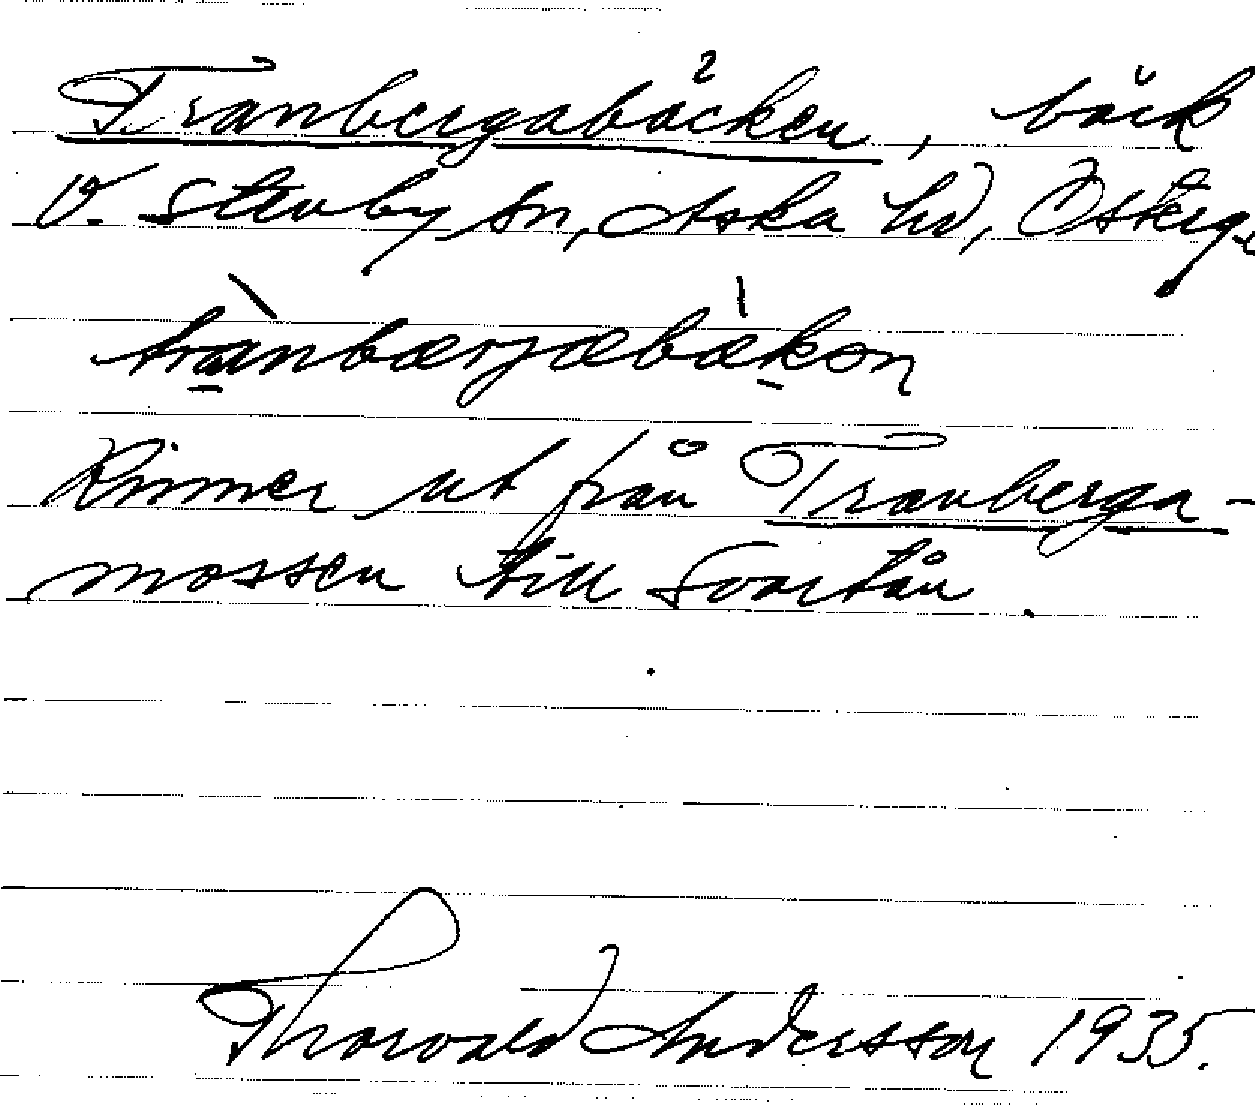 Tranbergabäcken, bäck
V. Stenby sn, Aska hd, Östergö
trànbærjæbǽkən
Rinner ut från Tranberga-
mossen till Svartån.
Thorvald Andersson 1935.